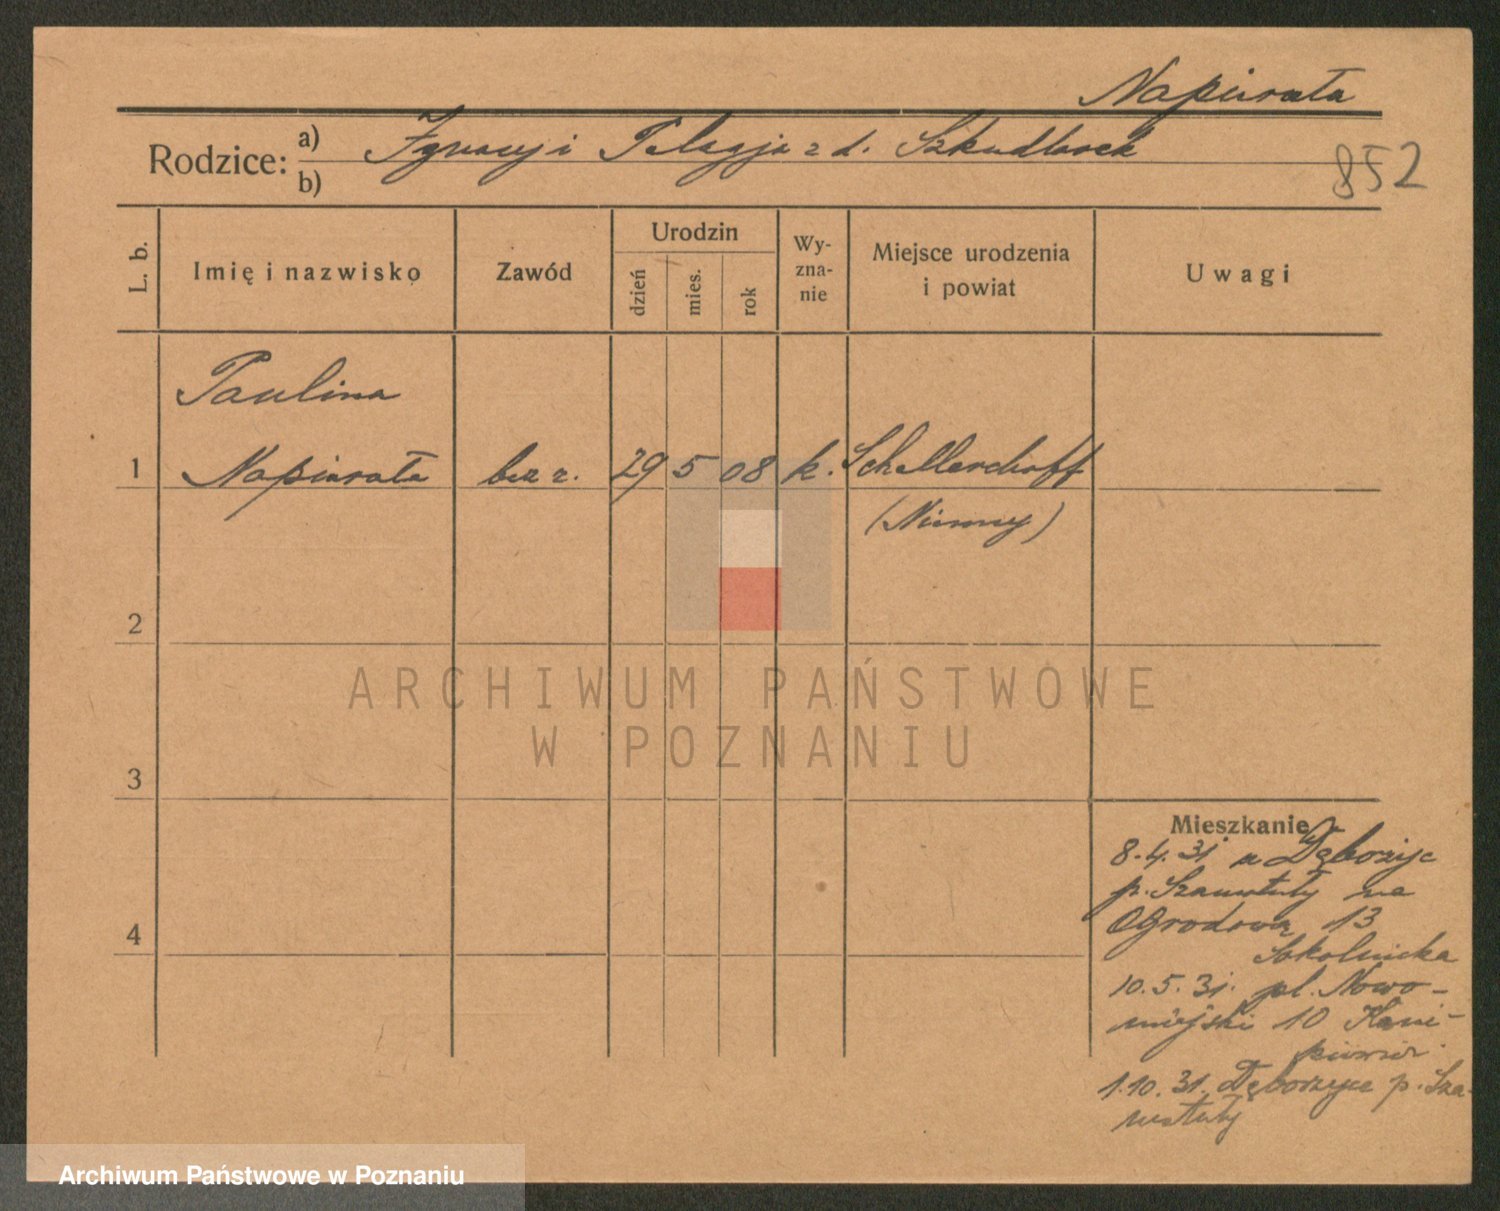 Napierała
Rodzice: a) Ignacy i Pelagja z d. Szkudlarek
b)
852
L. b.
Imię i nazwisko
Zawód
Urodzin
dzień
mies.
rok
Wy-
zna-
nie
Miejsce urodzenia
i powiat
Uwagi
Paulina
1 Napierała bez z. 29 5 08 k. Schellerhoff
(Niemcy)
2
3
4
Mieszkanie
8.4.31. z Dęborzyc
p. Szamotuły na
Ogrodową 13
Sokolnicka
10.5.31. pl. Nowo-
miejski 10
1.10.31. Dęborzyce p. Sza-
motuły
ARCHIWUM PAŃSTWOWE
W POZNANIU
Archiwum Państwowe w Poznaniu